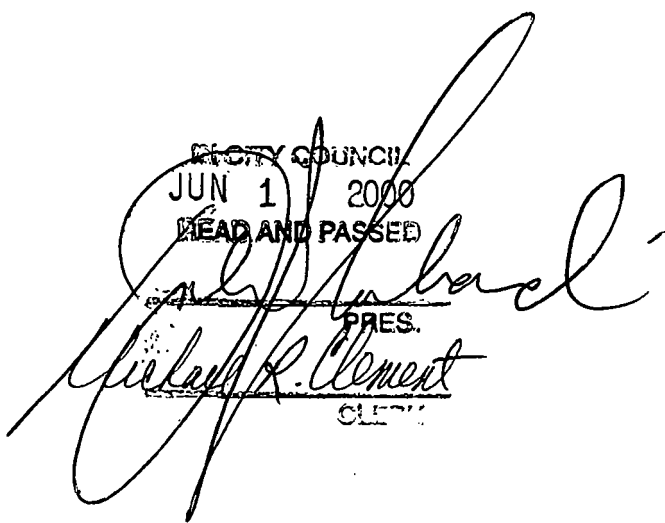 IN CITY COUNCIL
JUN 1 2000
READ AND PASSED
PRES.
Michael R. Clement
CLERK